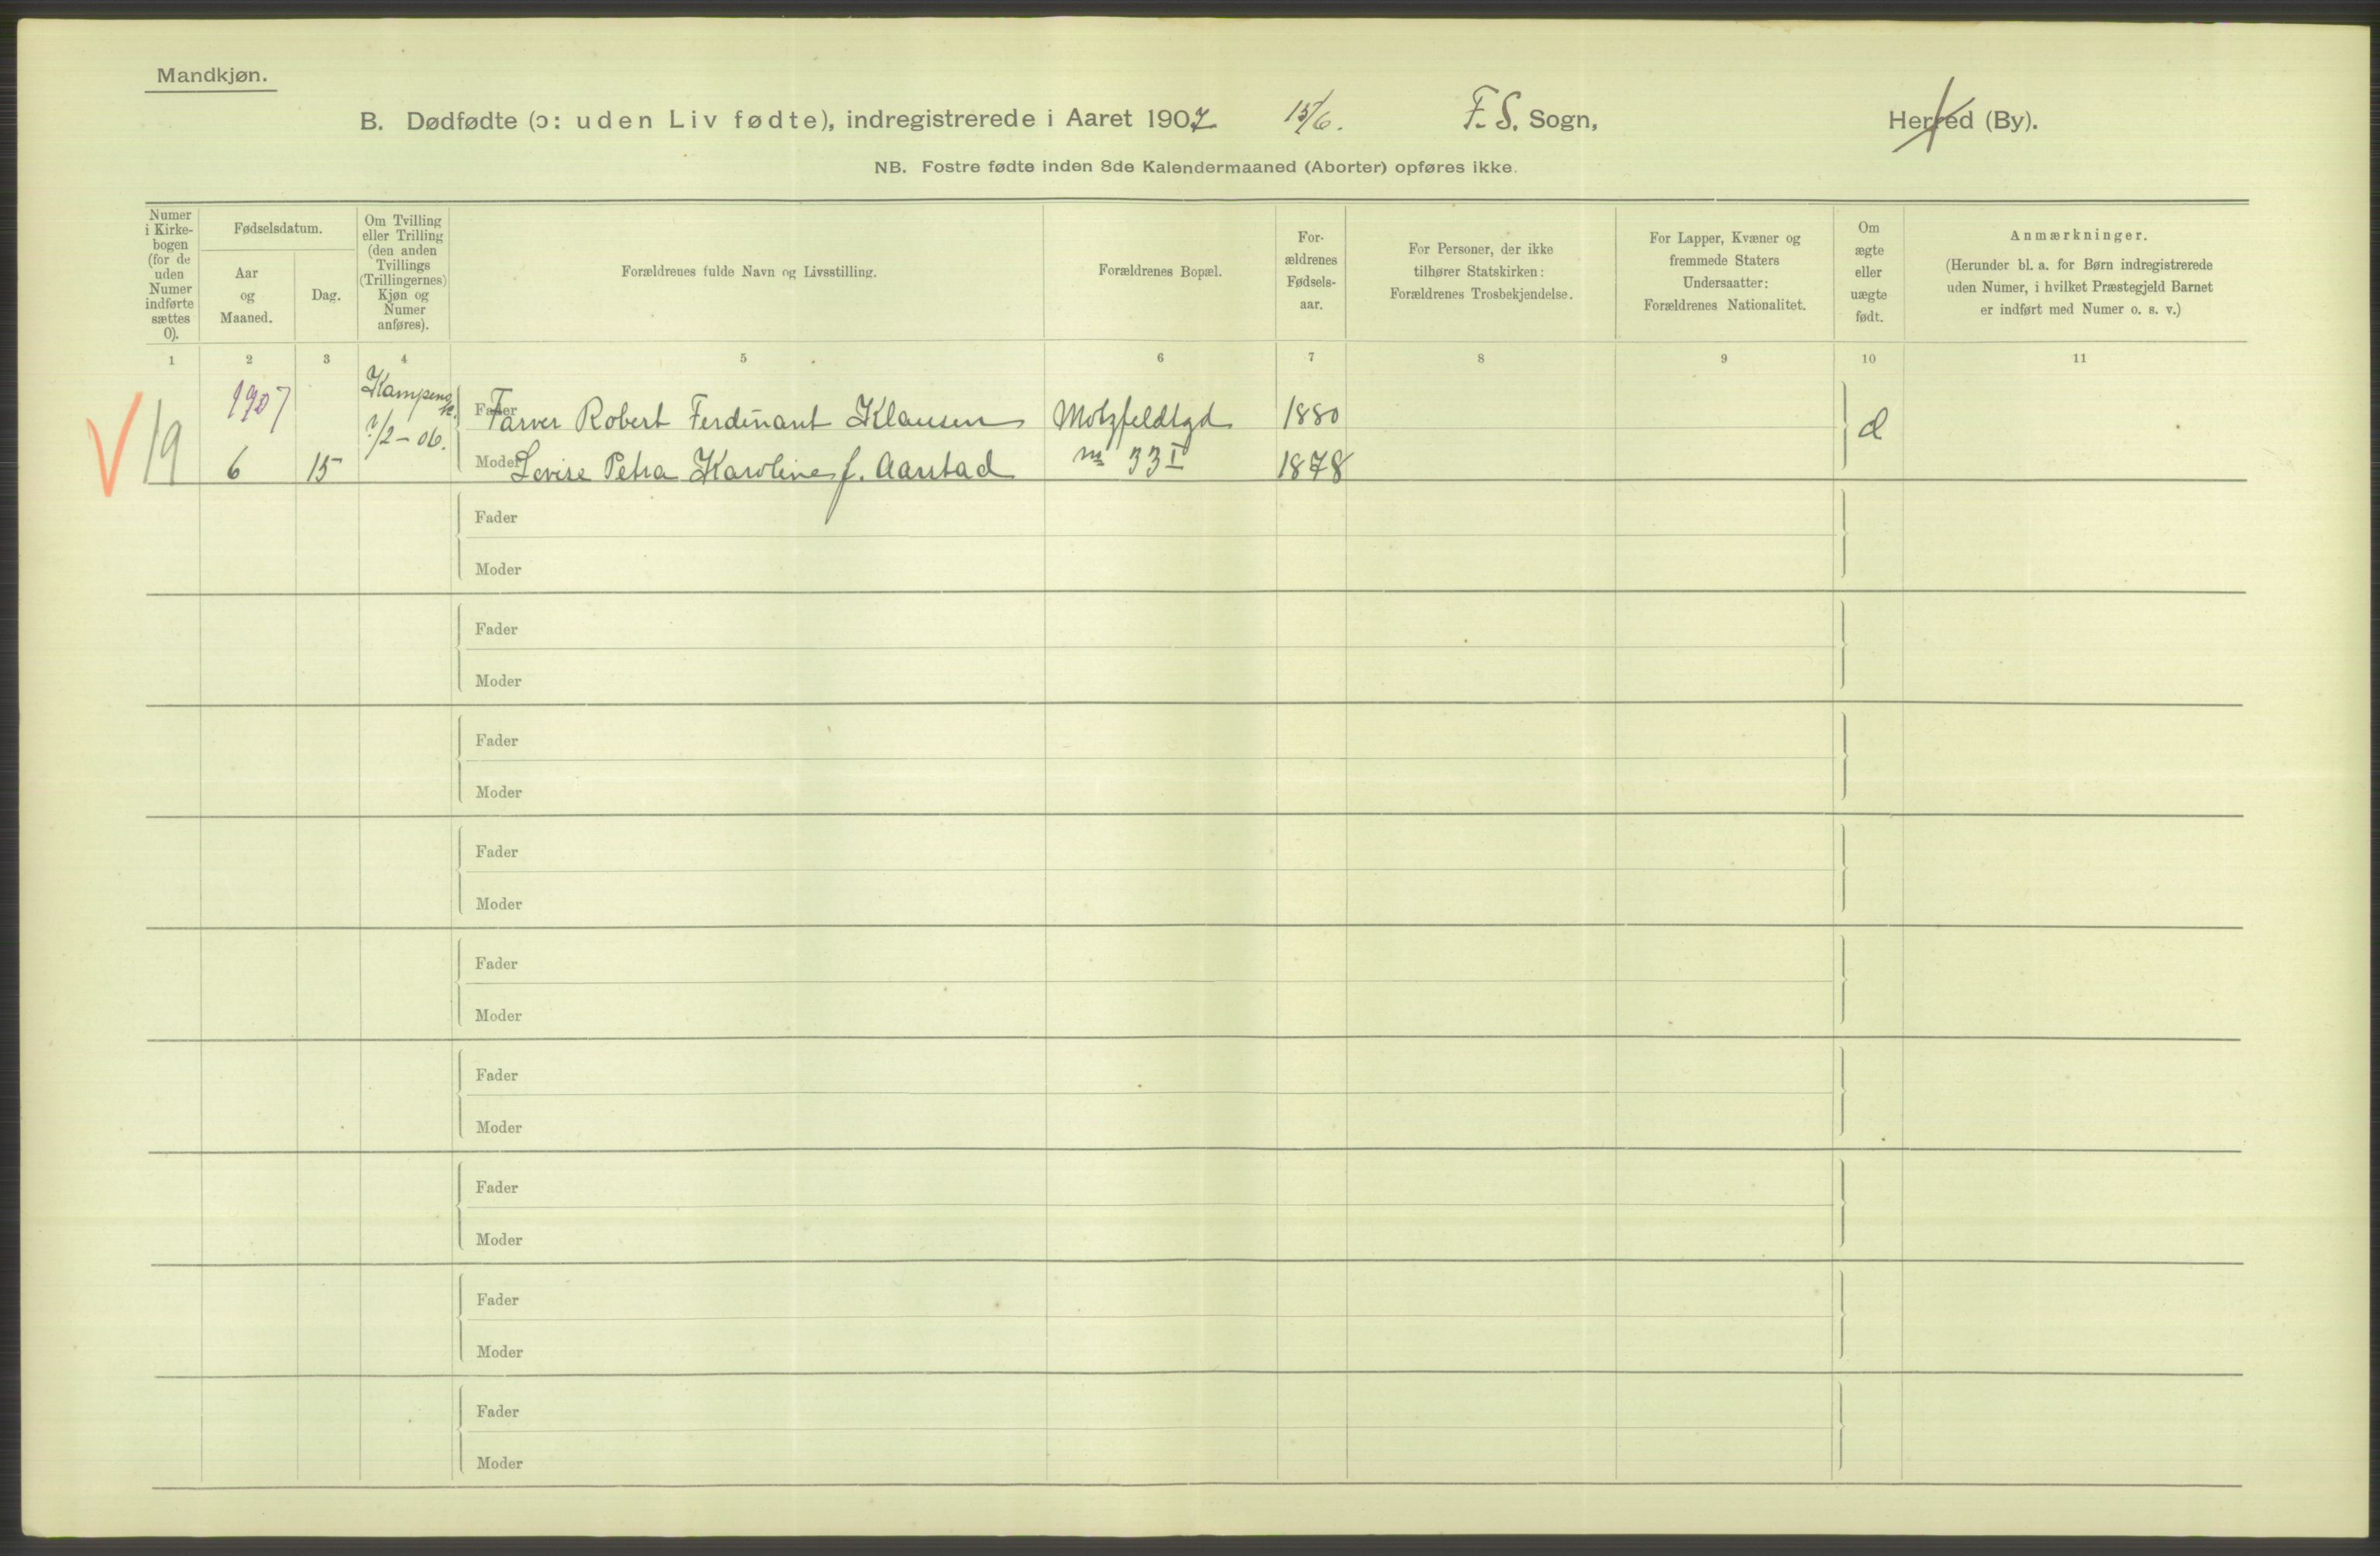 Mandkjøn.
B. Dødfødte (ɔ: uden Liv fødte), indregistrerede i Aaret 1907 15/6. F. S. Sogn, Herred (By).
NB. Fostre fødte inden 8de Kalendermaaned (Aborter) opføres ikke.
Numer i Kirke- bogen (for de uden Numer indførte sættes 0).
Fødselsdatum.
Aar og Maaned.
Dag.
Om Tvilling eller Trilling (den anden Tvillings (Trillingernes) Kjøn og Numer anføres).
Forældrenes fulde Navn og Livsstilling.
Forældrenes Bopæl.
For- ældrenes Fødsels- aar.
For Personer, der ikke tilhører Statskirken: Forældrenes Trosbekjendelse.
For Lapper, Kvæner og fremmede Staters Undersaatter: Forældrenes Nationalitet.
Om ægte eller uægte født.
Anmærkninger.
(Herunder bl. a. for Børn indregistrerede uden Numer, i hvilket Præstegjeld Barnet er indført med Numer o. s. v.)
1 2 3 4 5 6 7 8 9 10 11
1907 Kampens k.
Fader Farver Robert Ferdinant Klausen Motzfeldtgd 1880
19 6 15 /2-06. d
Moder Lovise Petra Karoline f. Aarstad no 33 I 1878
Fader
Moder
Fader
Moder
Fader
Moder
Fader
Moder
Fader
Moder
Fader
Moder
Fader
Moder
Fader
Moder
Fader
Moder